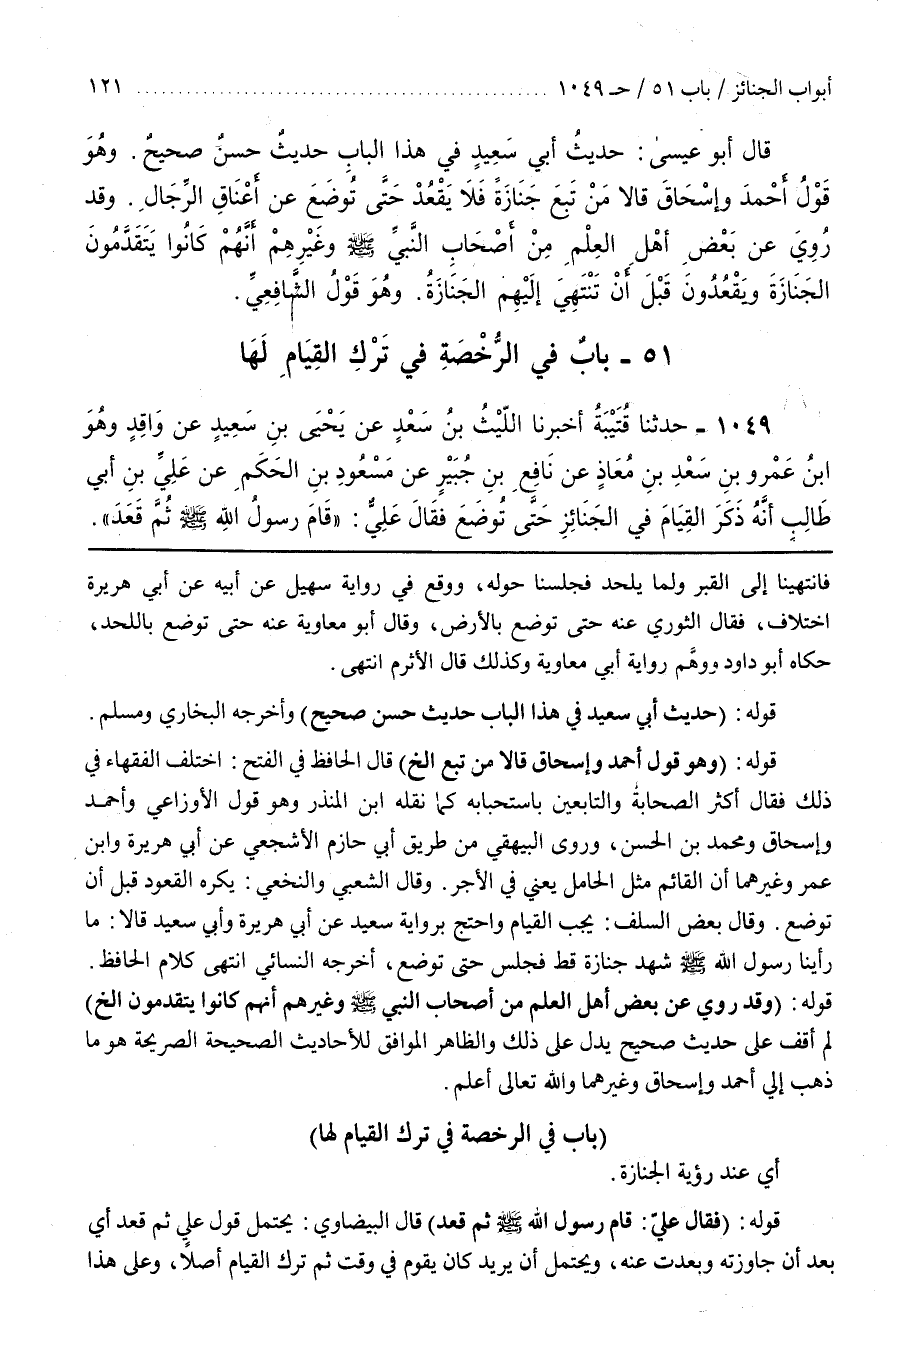 أبواب الجنائز / باب ٥١ / حـ ١٠٤٩ ........................................ ١٢١
قال أبو عيسىٰ: حديثُ أبي سَعِيدٍ في هذا البابِ حديثٌ حسنٌ صحيحٌ. وهُوَ
قَوْلُ أَحْمدَ وإسْحَاقَ قالا مَنْ تَبِعَ جَنَازَةً فَلَا يَقْعُدْ حَتَّى تُوضَعَ عن أَعْنَاقِ الرِّجَالِ. وقد
رُوِيَ عن بَعْضِ أهْلِ العِلْمِ مِنْ أَصْحَابِ النَّبيِّ ﷺ وغَيْرِهِمْ أنَّهُمْ كَانُوا يَتَقَدَّمُونَ
الجَنَازَةَ ويَقْعُدُونَ قَبْلَ أَنْ تَنْتَهِيَ إلَيْهِم الجَنَازَةُ. وهُوَ قَوْلُ الشَّافِعِيِّ.
٥١ - بابٌ في الرُّخْصَةِ في تَرْكِ القِيَامِ لَهَا
١٠٤٩ - حدثنا قُتَيْبَةُ أخبرنا اللّيْثُ بنُ سَعْدٍ عن يَحْيَى بنِ سَعِيدٍ عن وَاقِدٍ وهُوَ
ابنُ عَمْرِو بنِ سَعْدِ بنِ مُعَاذٍ عن نَافِعِ بنِ جُبَيْرٍ عن مَسْعُودِ بنِ الحَكَمِ عن عَلِيِّ بنِ أبي
طَالِبٍ أنَّهُ ذَكَرَ القِيَامَ في الجَنَائِزِ حَتَّى تُوضَعَ فقَالَ عَلِيٌّ: «قَامَ رسولُ الله ﷺ ثُمَّ قَعَدَ».
فانتهينا إلى القبر ولما يلحد فجلسنا حوله، ووقع في رواية سهيل عن أبيه عن أبي هريرة
اختلاف، فقال الثوري عنه حتى توضع بالأرض، وقال أبو معاوية عنه حتى توضع باللحد،
حكاه أبو داود ووهَّم رواية أبي معاوية وكذلك قال الأثرم انتهى.
قوله: (حديث أبي سعيد في هذا الباب حديث حسن صحيح) وأخرجه البخاري ومسلم.
قوله: (وهو قول أحمد وإسحاق قالا من تبع الخ) قال الحافظ في الفتح: اختلف الفقهاء في
ذلك فقال أكثر الصحابة والتابعين باستحبابه كما نقله ابن المنذر وهو قول الأوزاعي وأحمد
وإسحاق ومحمد بن الحسن، وروى البيهقي من طريق أبي حازم الأشجعي عن أبي هريرة وابن
عمر وغيرهما أن القائم مثل الحامل يعني في الأجر. وقال الشعبي والنخعي: يكره القعود قبل أن
توضع. وقال بعض السلف: يجب القيام واحتج برواية سعيد عن أبي هريرة وأبي سعيد قالا: ما
رأينا رسول الله ﷺ شهد جنازة قط فجلس حتى توضع، أخرجه النسائي انتهى كلام الحافظ.
قوله: (وقد روي عن بعض أهل العلم من أصحاب النبي ﷺ وغيرهم أنهم كانوا يتقدمون الخ)
لم أقف على حديث صحيح يدل على ذلك والظاهر الموافق للأحاديث الصحيحة الصريحة هو ما
ذهب إلي أحمد وإسحاق وغيرهما والله تعالى أعلم.
(باب في الرخصة في ترك القيام لها)
أي عند رؤية الجنازة.
قوله: (فقال عليّ: قام رسول الله ﷺ ثم قعد) قال البيضاوي: يحتمل قول علي ثم قعد أي
بعد أن جاوزته وبعدت عنه، ويحتمل أن يريد كان يقوم في وقت ثم ترك القيام أصلاً، وعلى هذا